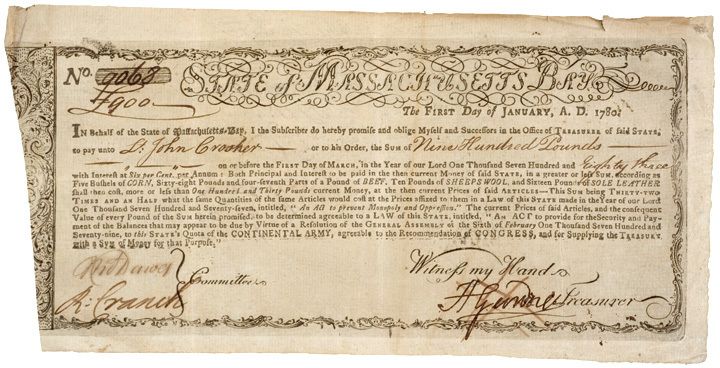 No. 9068 STATE of MASSACHUSETTS BAY.
£900
The FIRST Day of JANUARY, A. D. 1780.
IN Behalf of the State of Massachusetts-Bay, I the Subscriber do hereby promise and oblige Myself and Successors in the Office of TREASURER of said STATE,
to pay unto Lt. John Crooker or to his Order, the SUM of Nine Hundred Pounds
on or before the FIRST Day of MARCH, in the Year of our Lord One Thousand Seven Hundred and Eighty three
with Interest at Six per Cent. per Annum: Both Principal and Interest to be paid in the then current Money of said STATE, in a greater or less SUM, according as
Five Bushels of CORN, Sixty-eight Pounds and four-seventh Parts of a Pound of BEEF, Ten Pounds of SHEEPSWOOL, and Sixteen Pounds of SOLE LEATHER
shall then cost, more or less than One Hundred and Thirty Pounds current Money, at the then current Prices of said ARTICLES—This SUM being THIRTY-TWO
TIMES AND AN HALF what the same Quantities of the same Articles would cost at the Prices affixed to them in a Law of this STATE made in the Year of our Lord
One Thousand Seven Hundred and Seventy-seven, intitled, "An ACT to prevent Monopoly and Oppression." The current Prices of said Articles, and the consequent
Value of every Pound of the SUM herein promised, to be determined agreeable to a LAW of this STATE, intitled, "An ACT to provide for the Security and Pay-
ment of the Balances that may appear to be due by Virtue of a Resolution of the GENERAL ASSEMBLY of the Sixth of February One Thousand Seven Hundred and
Seventy-nine, to this STATE's Quota of the CONTINENTAL ARMY, agreeable to the Recommendation of CONGRESS, and for Supplying the TREASURY
with a SUM of Money for that Purpose."
Committee.
Witness my Hand
R: Cranch
Treasurer